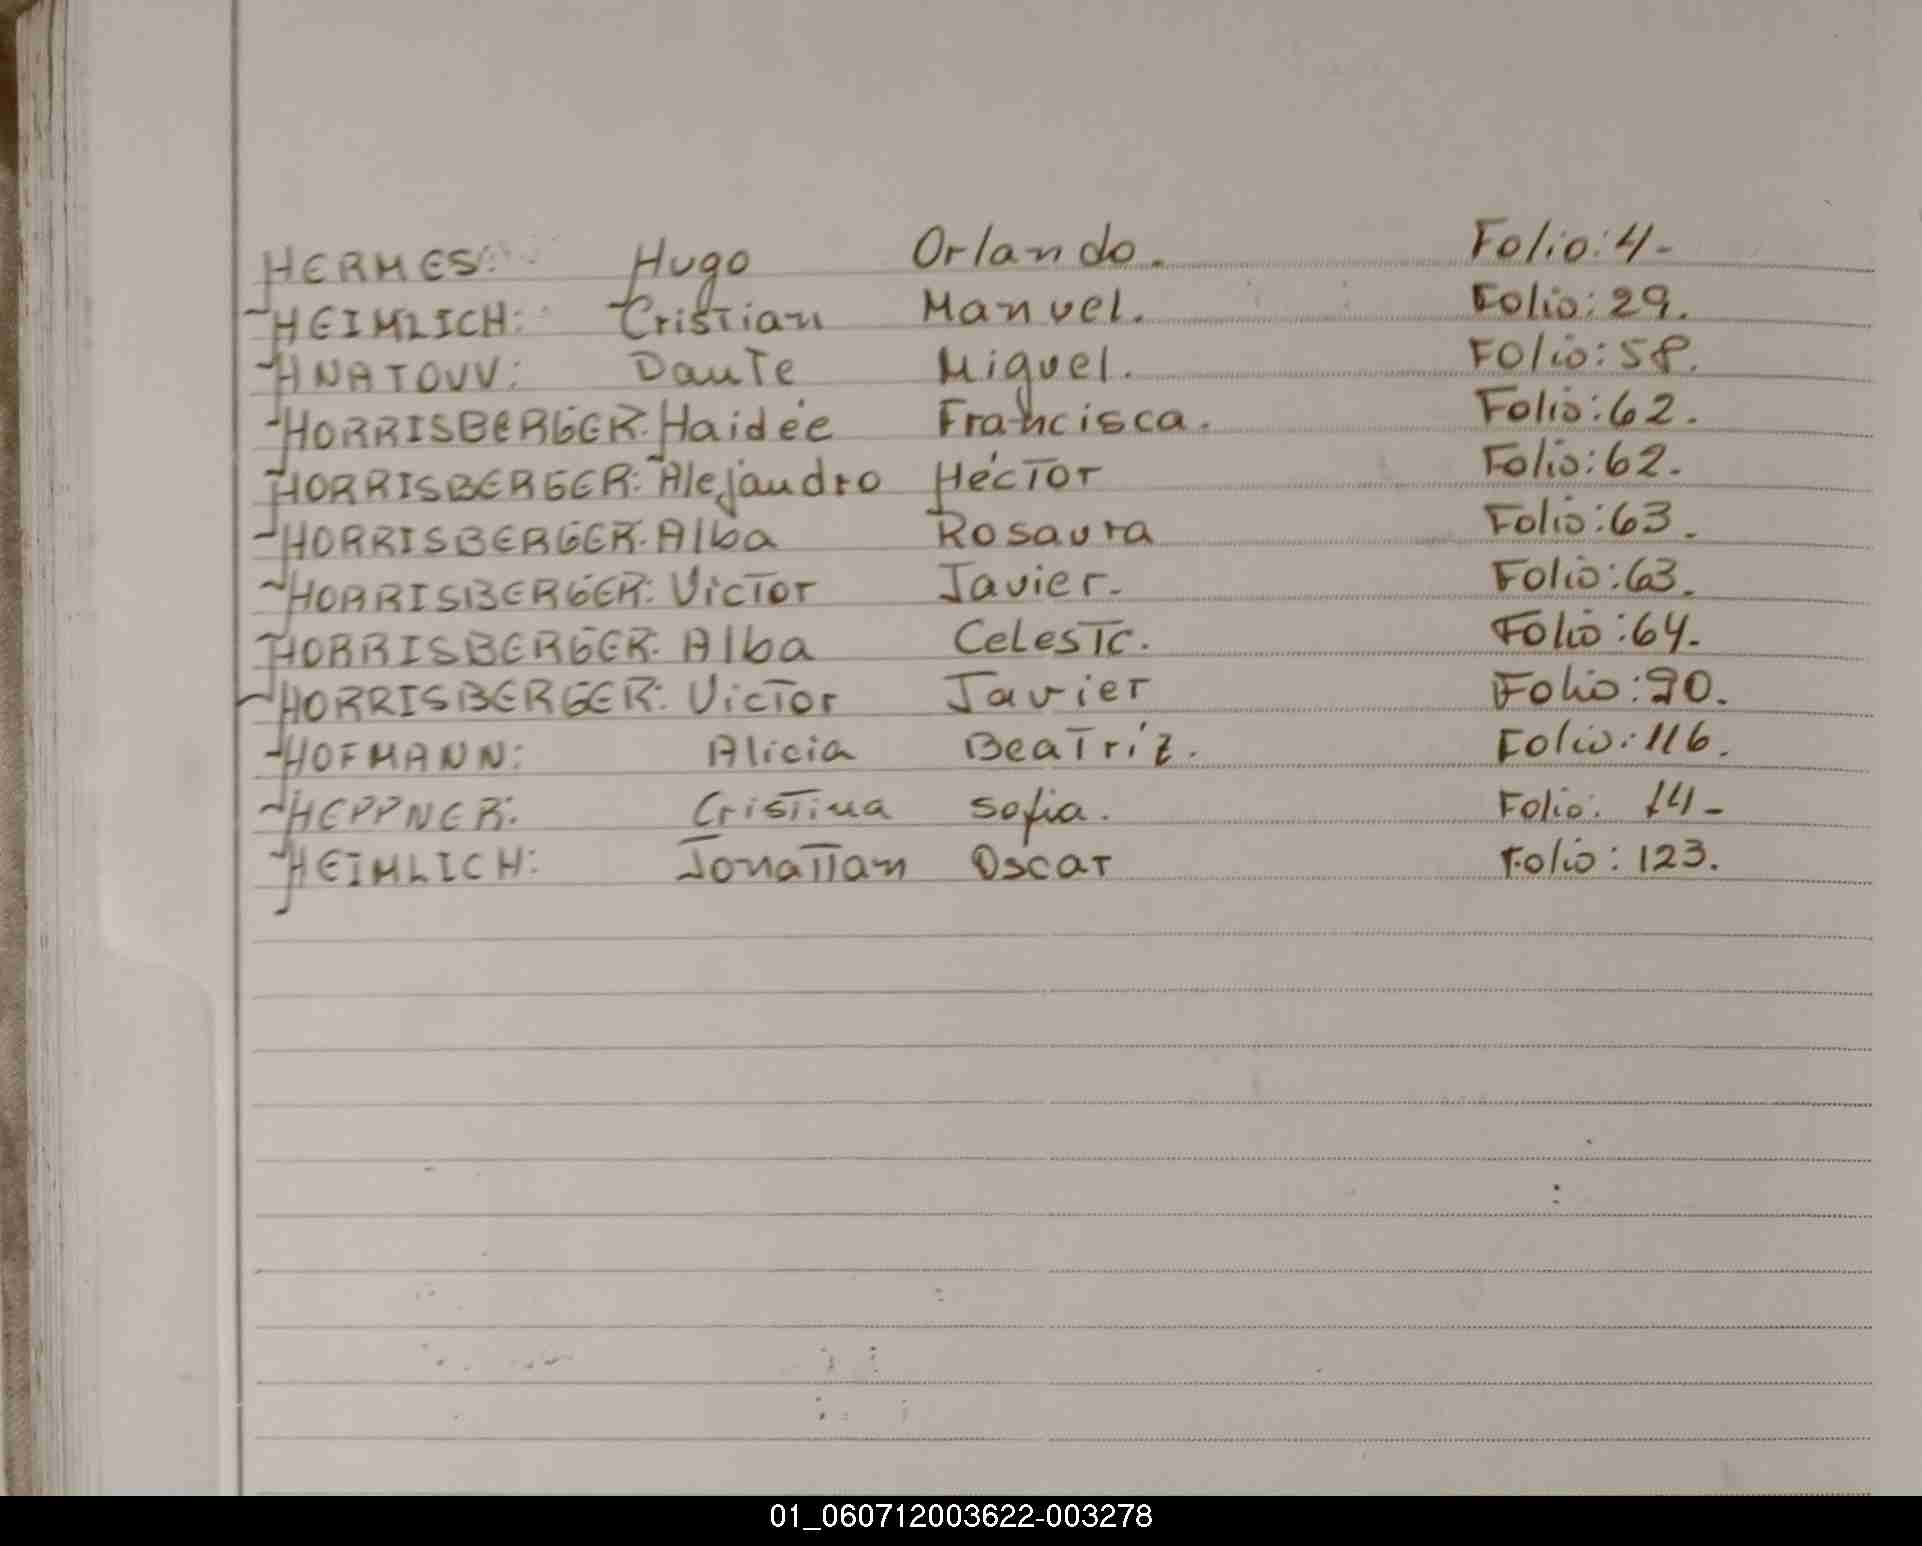 HERMES: Hugo Orlando. Folio: 4-
HEIMLICH: Cristian Manuel. Folio: 29.
HNATOVV: Dante Miguel. Folio: 58.
HORRISBERGER: Haidée Francisca. Folio: 62.
HORRISBERGER: Alejandro Héctor Folio: 62.
HORRISBERGER: Alba Rosaura Folio: 63.
HORRISBERGER: Victor Javier. Folio: 63.
HORRISBERGER: Alba Celeste. Folio: 64.
HORRISBERGER: Victor Javier Folio: 90.
HOFMANN: Alicia Beatriz. Folio: 116.
HEPPNER: Cristina Sofia. Folio: 14-
HEIMLICH: Jonattan Oscar Folio: 123.
01_060712003622-003278